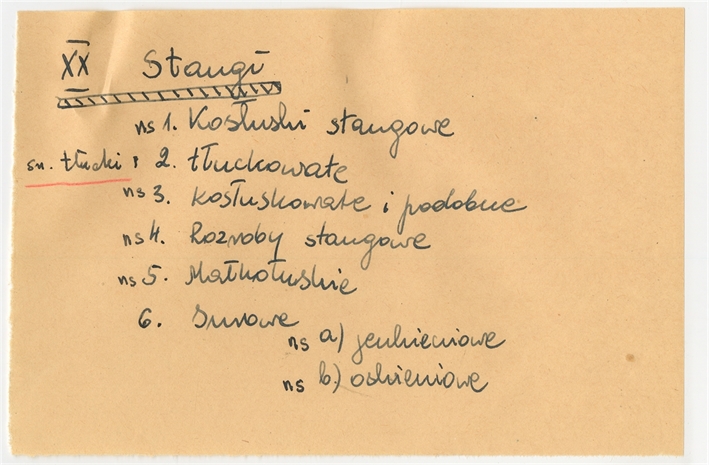 XX Stangi
ns 1. Kosłuski stangowe
sn. tłucki : 2. tłuckowate
ns 3. kosłuskowate i podobne
ns 4. Rozroby stangowe
ns 5. Małkołuskie
6. Surowe
ns a) jenkieniowe
ns b.) oskieniowe